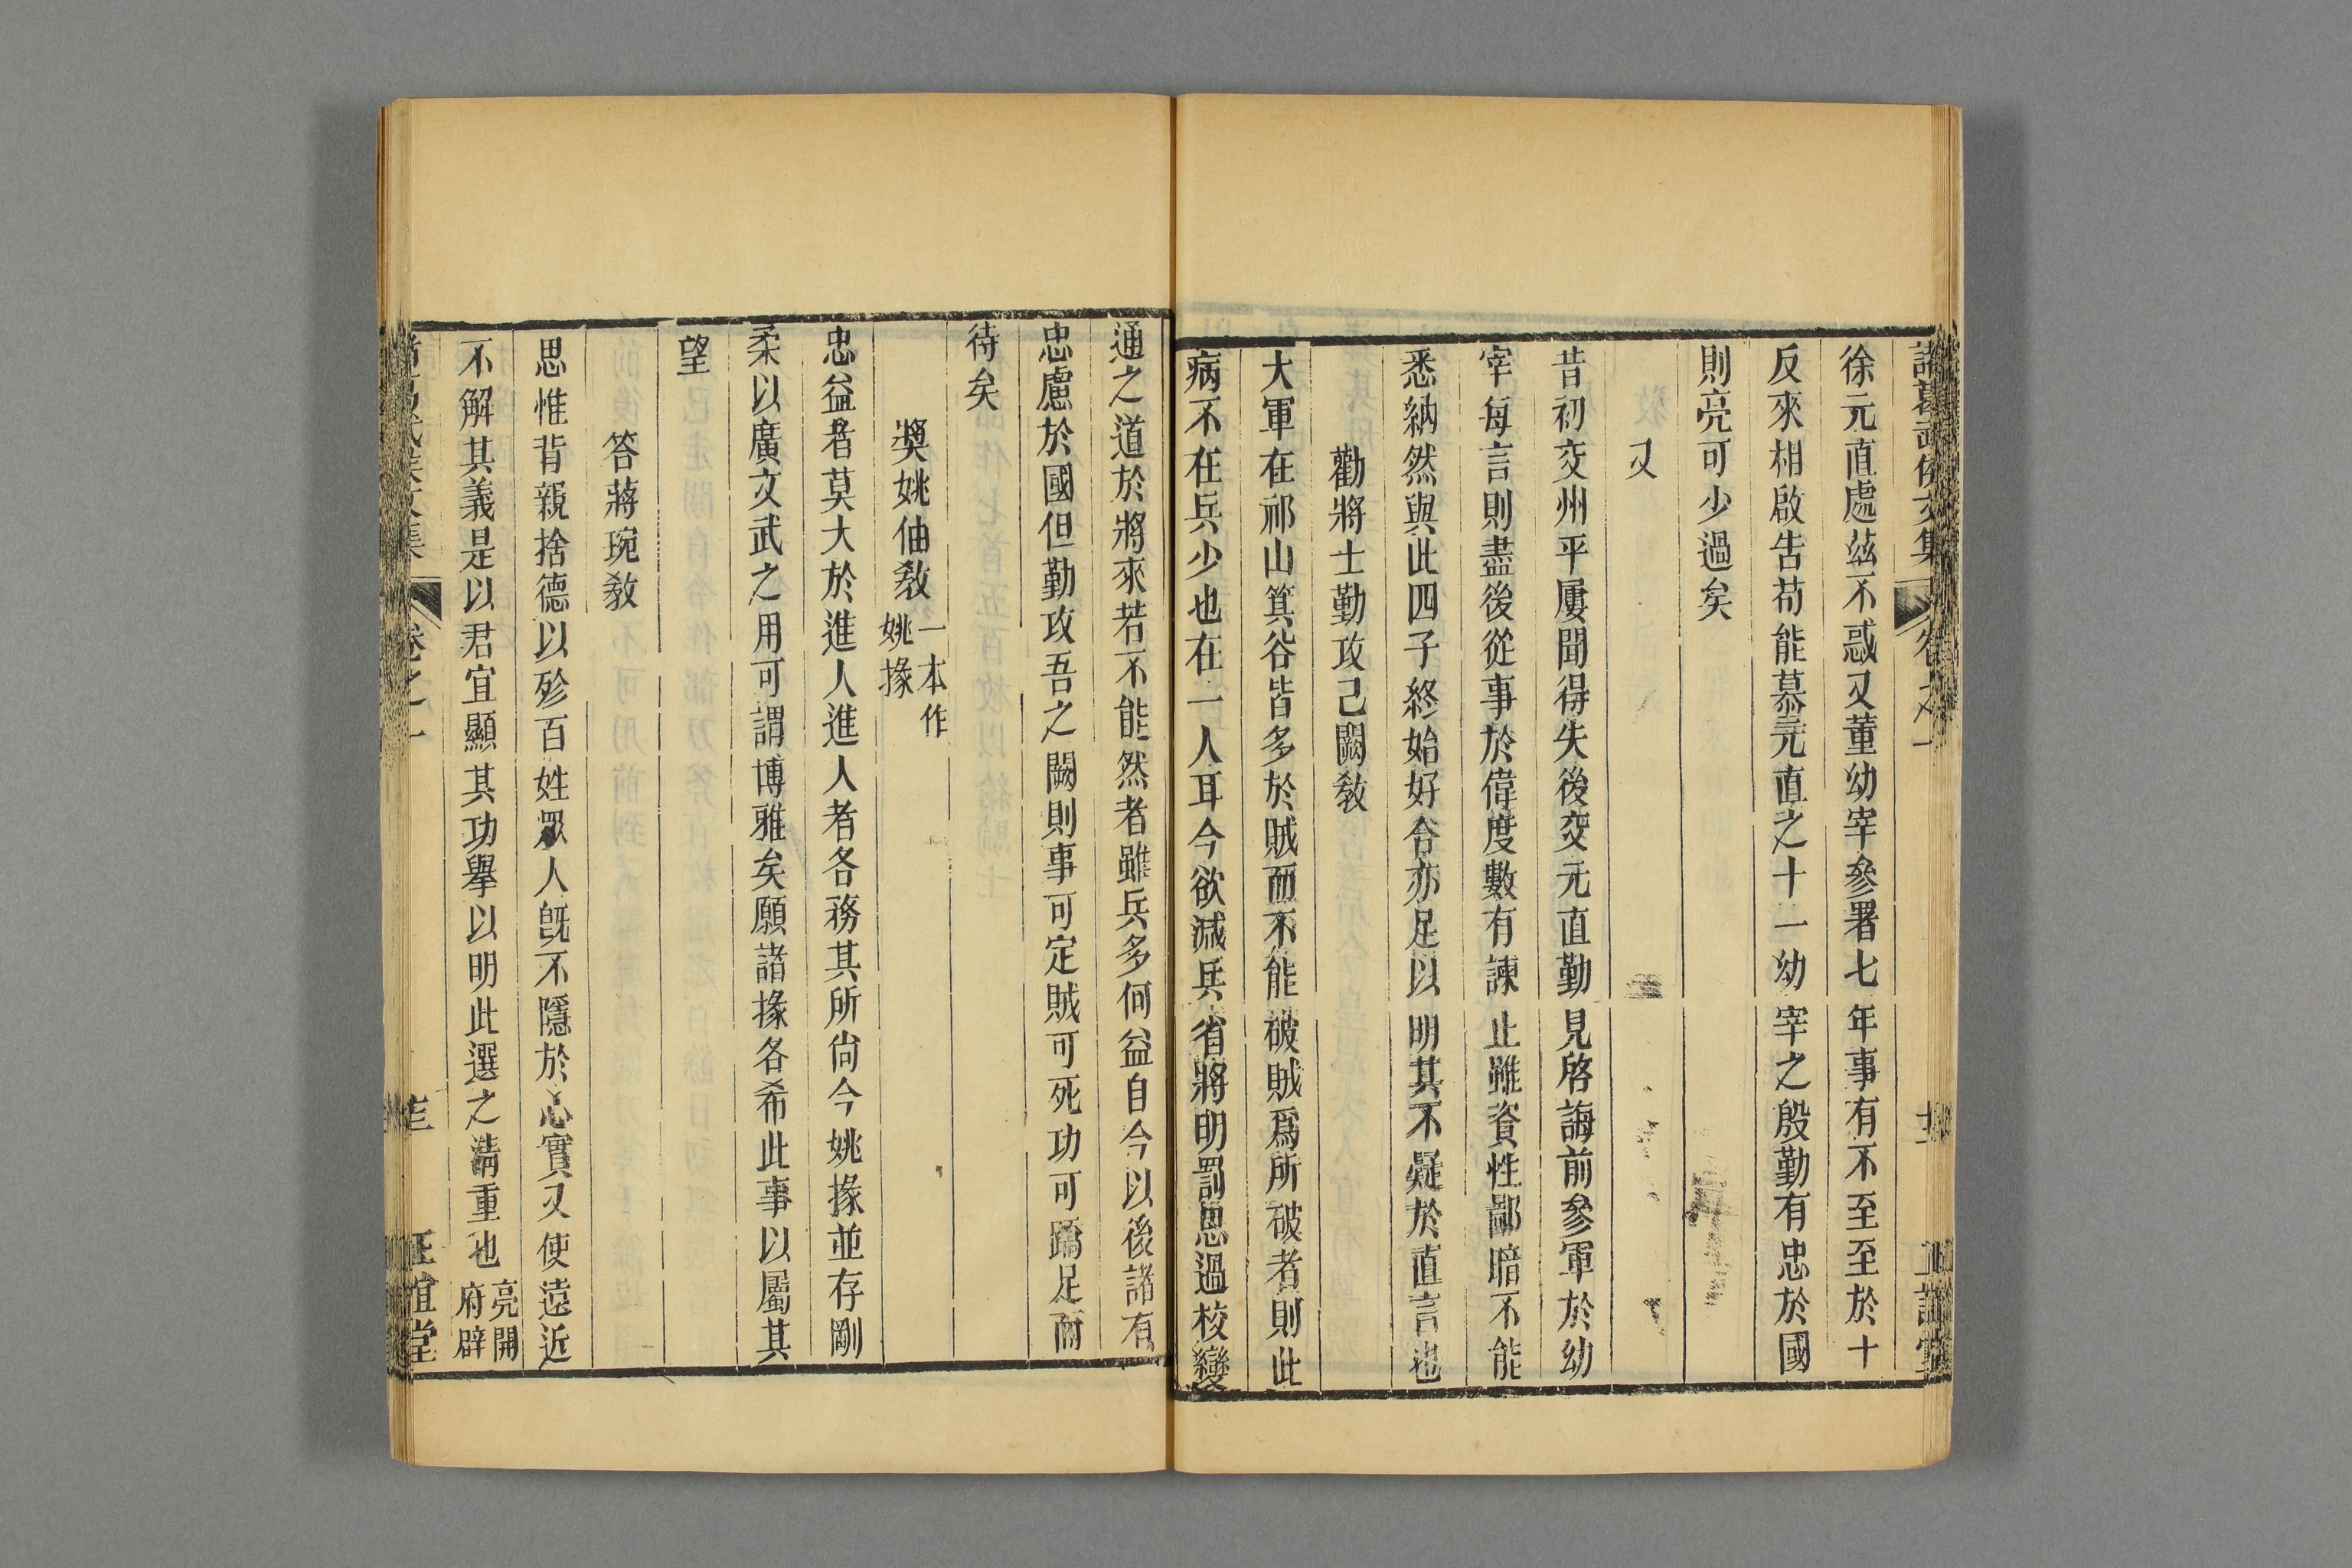 諸葛武侯文集 卷之一
徐元直處茲不惑又董幼宰參署七年事有不至至於十
反來相啟告苟能慕元直之十一幼宰之殷勤有忠於國
則亮可少過矣
又
昔初交州平屢聞得失後交元直勤見啓誨前參軍於幼
宰每言則盡後從事於偉度數有諫止雖資性鄙暗不能
悉納然與此四子終始好合亦足以明其不疑於直言也
勸將士勤攻己闕敎
大軍在祁山箕谷皆多於賊而不能破賊爲所破者則此
病不在兵少也在一人耳今欲減兵省將明罰思過校變
通之道於將來若不能然者雖兵多何益自今以後諸有
忠慮於國但勤攻吾之闕則事可定賊可死功可蹻足而
待矣
獎姚伷敎 一本作
姚掾
忠益者莫大於進人進人者各務其所尙今姚掾並存剛
柔以廣文武之用可謂博雅矣願諸掾各希此事以屬其
望
答蔣琬敎
思惟背親捨德以殄百姓眾人旣不隱於心實又使遠近
不解其義是以君宜顯其功舉以明此選之淸重也 亮開
府辟
卷之一 正誼堂